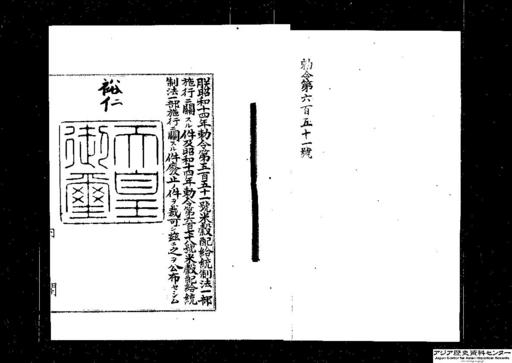 勅令第六百五十一號
朕昭和十四年勅令第五百五十一號米穀配給統制法一部
施行ニ關スル件及昭和十四年勅令第六百十八號米穀配給統
制法一部施行ニ關スル件廢止ノ件ヲ裁可シ茲ニ之ヲ公布セシム
裕仁
天皇
御璽
內
閣
アジア歴史資料センター
Japan Center for Asian Historical Records